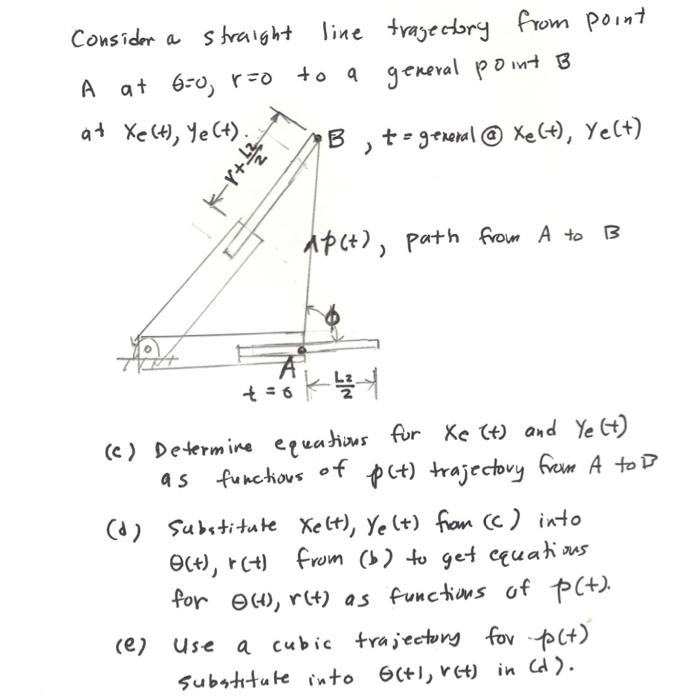 Consider a straight line trajectory from point
A at θ=0, r=0 to a general point B
at Xe(t), Ye(t).
B, t = general @ Xe(t), Ye(t)
r+L2/2
p(t), path from A to B
ϕ
A
t = 0
L2/2
(c) Determine equations for Xe(t) and Ye(t)
as functions of p(t) trajectory from A to B
(d) Substitute Xe(t), Ye(t) from (c) into
θ(t), r(t) from (b) to get equations
for θ(t), r(t) as functions of p(t).
(e) Use a cubic trajectory for p(t)
substitute into θ(t), r(t) in (d).